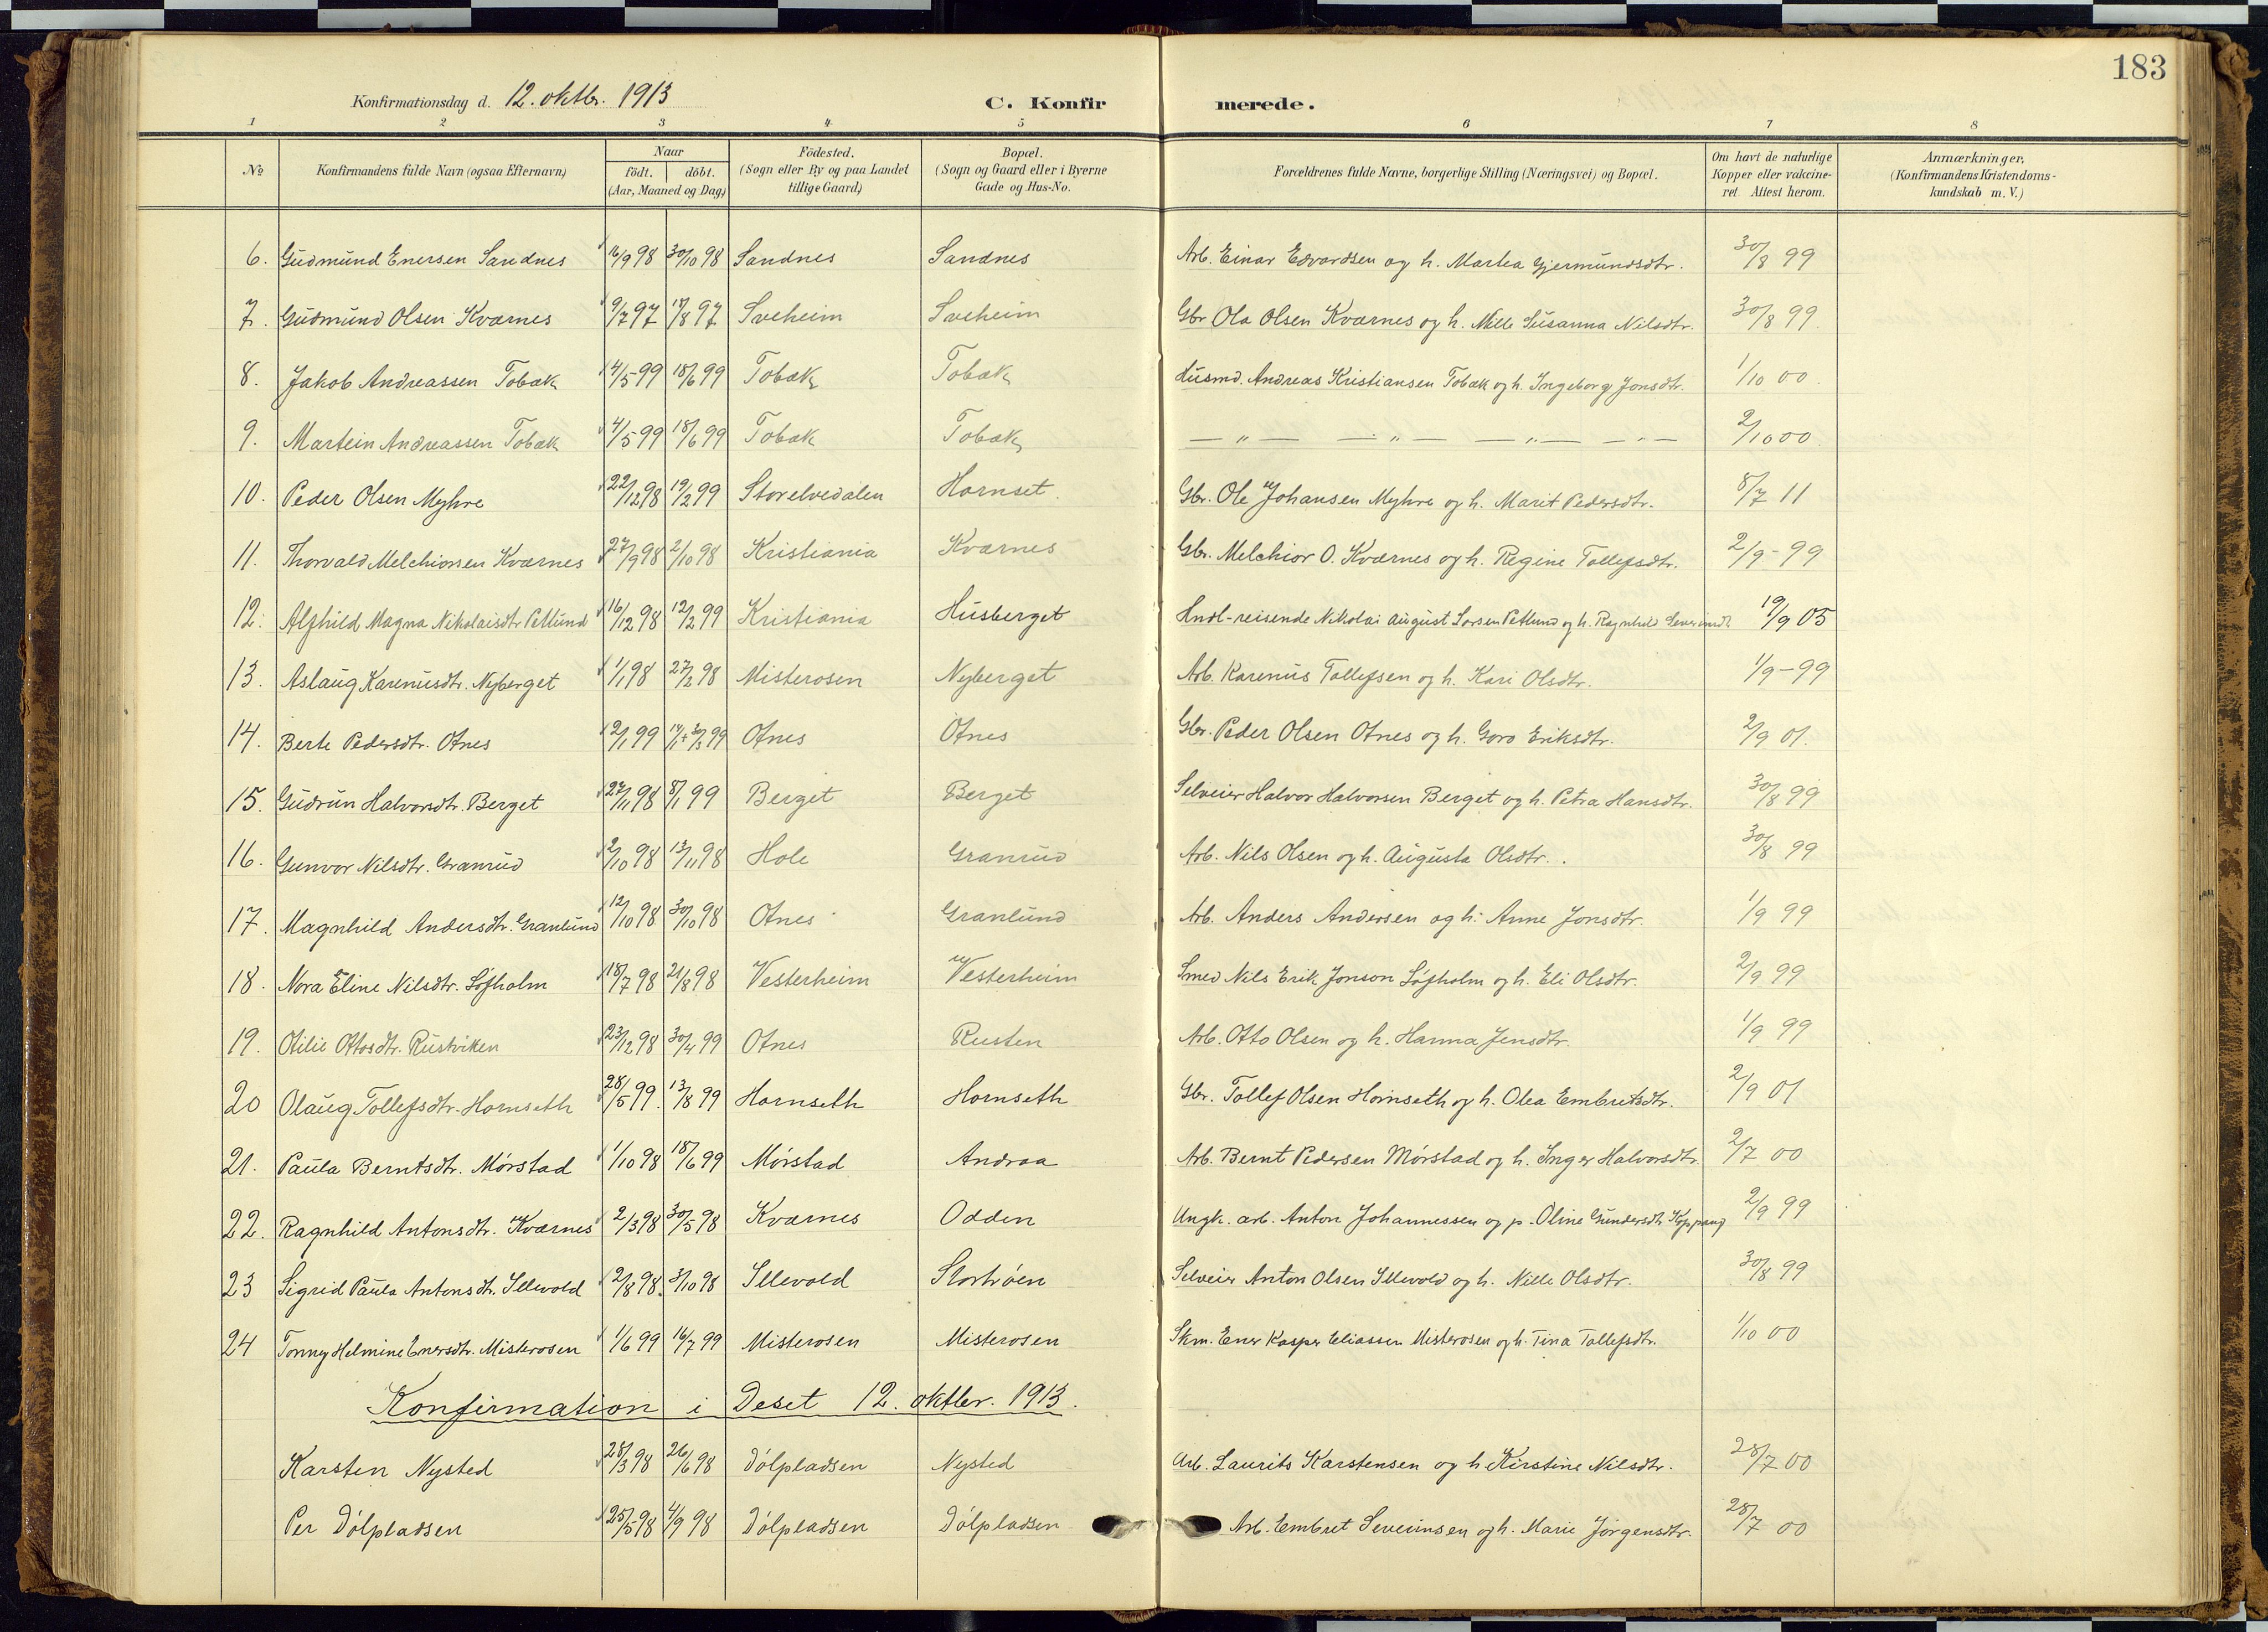 183
Konfirmationsdag d. 12. oktbr. 1913 C. Konfirmerede.
1 2 3 4 5 6 7 8
No Konfirmandens fulde Navn (ogsaa Efternavn) Naar födt. döbt. (Aar, Maaned og Dag) Födested. (Sogn eller By og paa Landet tillige Gaard) Bopæl. (Sogn og Gaard eller i Byerne Gade og Hus-No. Forældrenes fulde Navne, borgerlige Stilling (Næringsvei) og Bopæl. Om havt de naturlige Kopper eller vakcineret Attest herom. Anmærkninger. (Konfirmandens Kristendomskundskab m. V.)
6. Gudmund Enersen Sandnes 16/9 98 30/10 98 Sandnes Sandnes Arb. Einar Edvardsen og h. Martea Gjermundsdtr. 30/8 99
7. Gudmund Olsen Kværnes 9/7 97 18/8 97 Sveheim Sveheim Gbr Ola Olsen Kværnes og h. Mille Susanna Nilsdtr. 30/8 99
8. Jakob Andreassen Tobæk 4/5 99 18/6 99 Tobæk Tobæk Husmd. Andreas Kristiansen Tobæk og h. Ingeborg Jonsdtr. 1/10 00
9. Martein Andreassen Tobæk 4/5 99 18/6 99 Tobæk Tobæk — " — — " — — " — — " — 2/10 00
10. Peder Olsen Myhre 22/12 98 19/2 99 Storelvedalen Hornset Gbr. Ole Johansen Myhre og h. Marit Pedersdtr. 8/7 11
11. Thorvald Melchiorsen Kværnes 27/9 98 2/10 98 Kristiania Kværnes Gbr. Melchior O. Kværnes og h. Regine Tollefsdtr. 2/9-99
12. Alfhild Magna Nikolaisdtr Petlund 16/12 98 12/2 99 Kristiania Husberget Handl-reisende Nikolai August Larsen Petlund og h. Ragnhild 19/9 05
13. Aslaug Karenusdtr. Nyberget 1/1 98 27/2 98 Misterosen Nyberget Arb. Karenus Tollefsen og h. Kari Olsdtr. 1/9-99
14. Berte Pedersdtr. Otnes 2/1 99 Otnes Otnes Gbr. Peder Olsen Otnes og h. Goro Eriksdtr. 2/9 01.
15. Gudrun Halvorsdtr. Berget 27/11 98 8/1 99 Berget Berget Selveier Halvor Halvorsen Berget og h. Petra Hansdtr. 30/8 99
16. Gunvor Nilsdtr. Granrud 2/10 98 13/11 98 Hole Granrud Arb. Nils Olsen og h. Augusta Olsdtr. 30/8 99
17. Magnhild Andersdtr. Granlund 12/10 98 30/10 98 Otnes Granlund Arb. Anders Andersen og h. Anne Jonsdtr. 1/9 99
18. Nora Eline Nilsdtr. Löfholm 18/7 98 21/8 98 Vesterheim Vesterheim Smed Nils Erik Jonson Löfholm og h. Eli Olsdtr. 2/9 99
19. Otilie Ottosdtr. Rustviken 23/12 98 30/4 99 Otnes Rusten Arb. Otto Olsen og h. Hanna Jensdtr. 1/9 99
20 Olaug Tollefsdtr. Hornseth 28/5 99. 13/8 99 Hornseth Hornseth Gbr. Tollef Olsen Hornseth og h. Olea Embretsdtr. 2/9 01
21. Paula Berntsdtr. Mörstad 1/10 98 18/6 99 Mörstad Andraa Arb. Bernt Pedersen Mörstad og h. Inger Halvorsdtr. 2/7 00
22. Ragnhild Antonsdtr. Kværnes 2/3 98 30/5 98 Kværnes Odden Ungk. arb. Anton Johannessen og p. Oline Gundersdtr. Koppang 2/9 99
23 Sigrid Paula Antonsdtr. Illevold 2/8 98. 3/10 98 Illevold Stortröen Selveier Anton Olsen Illevold og h. Nille Olsdtr. 30/8 99
24 Tonny Helmine Enersdtr. Misterosen 1/6 99 16/7 99 Misterosen Misterosen Skm. Ener Kasper Eliassen Misterosen og h. Tina Tollefsdtr. 1/10 00
Konfirmation i Deset 12. oktbr. 1913.
Karsten Nysted 28/3 98 26/6 98 Dölpladsen Nysted Arb. Laurits Karstensen og h. Kirstine Nilsdtr. 28/7 00
Per Dölpladsen 25/5 98 4/9 98 Dölpladsen Dölpladsen Arb. Embret Severinsen og h. Marie Jörgensdtr. 28/7 00